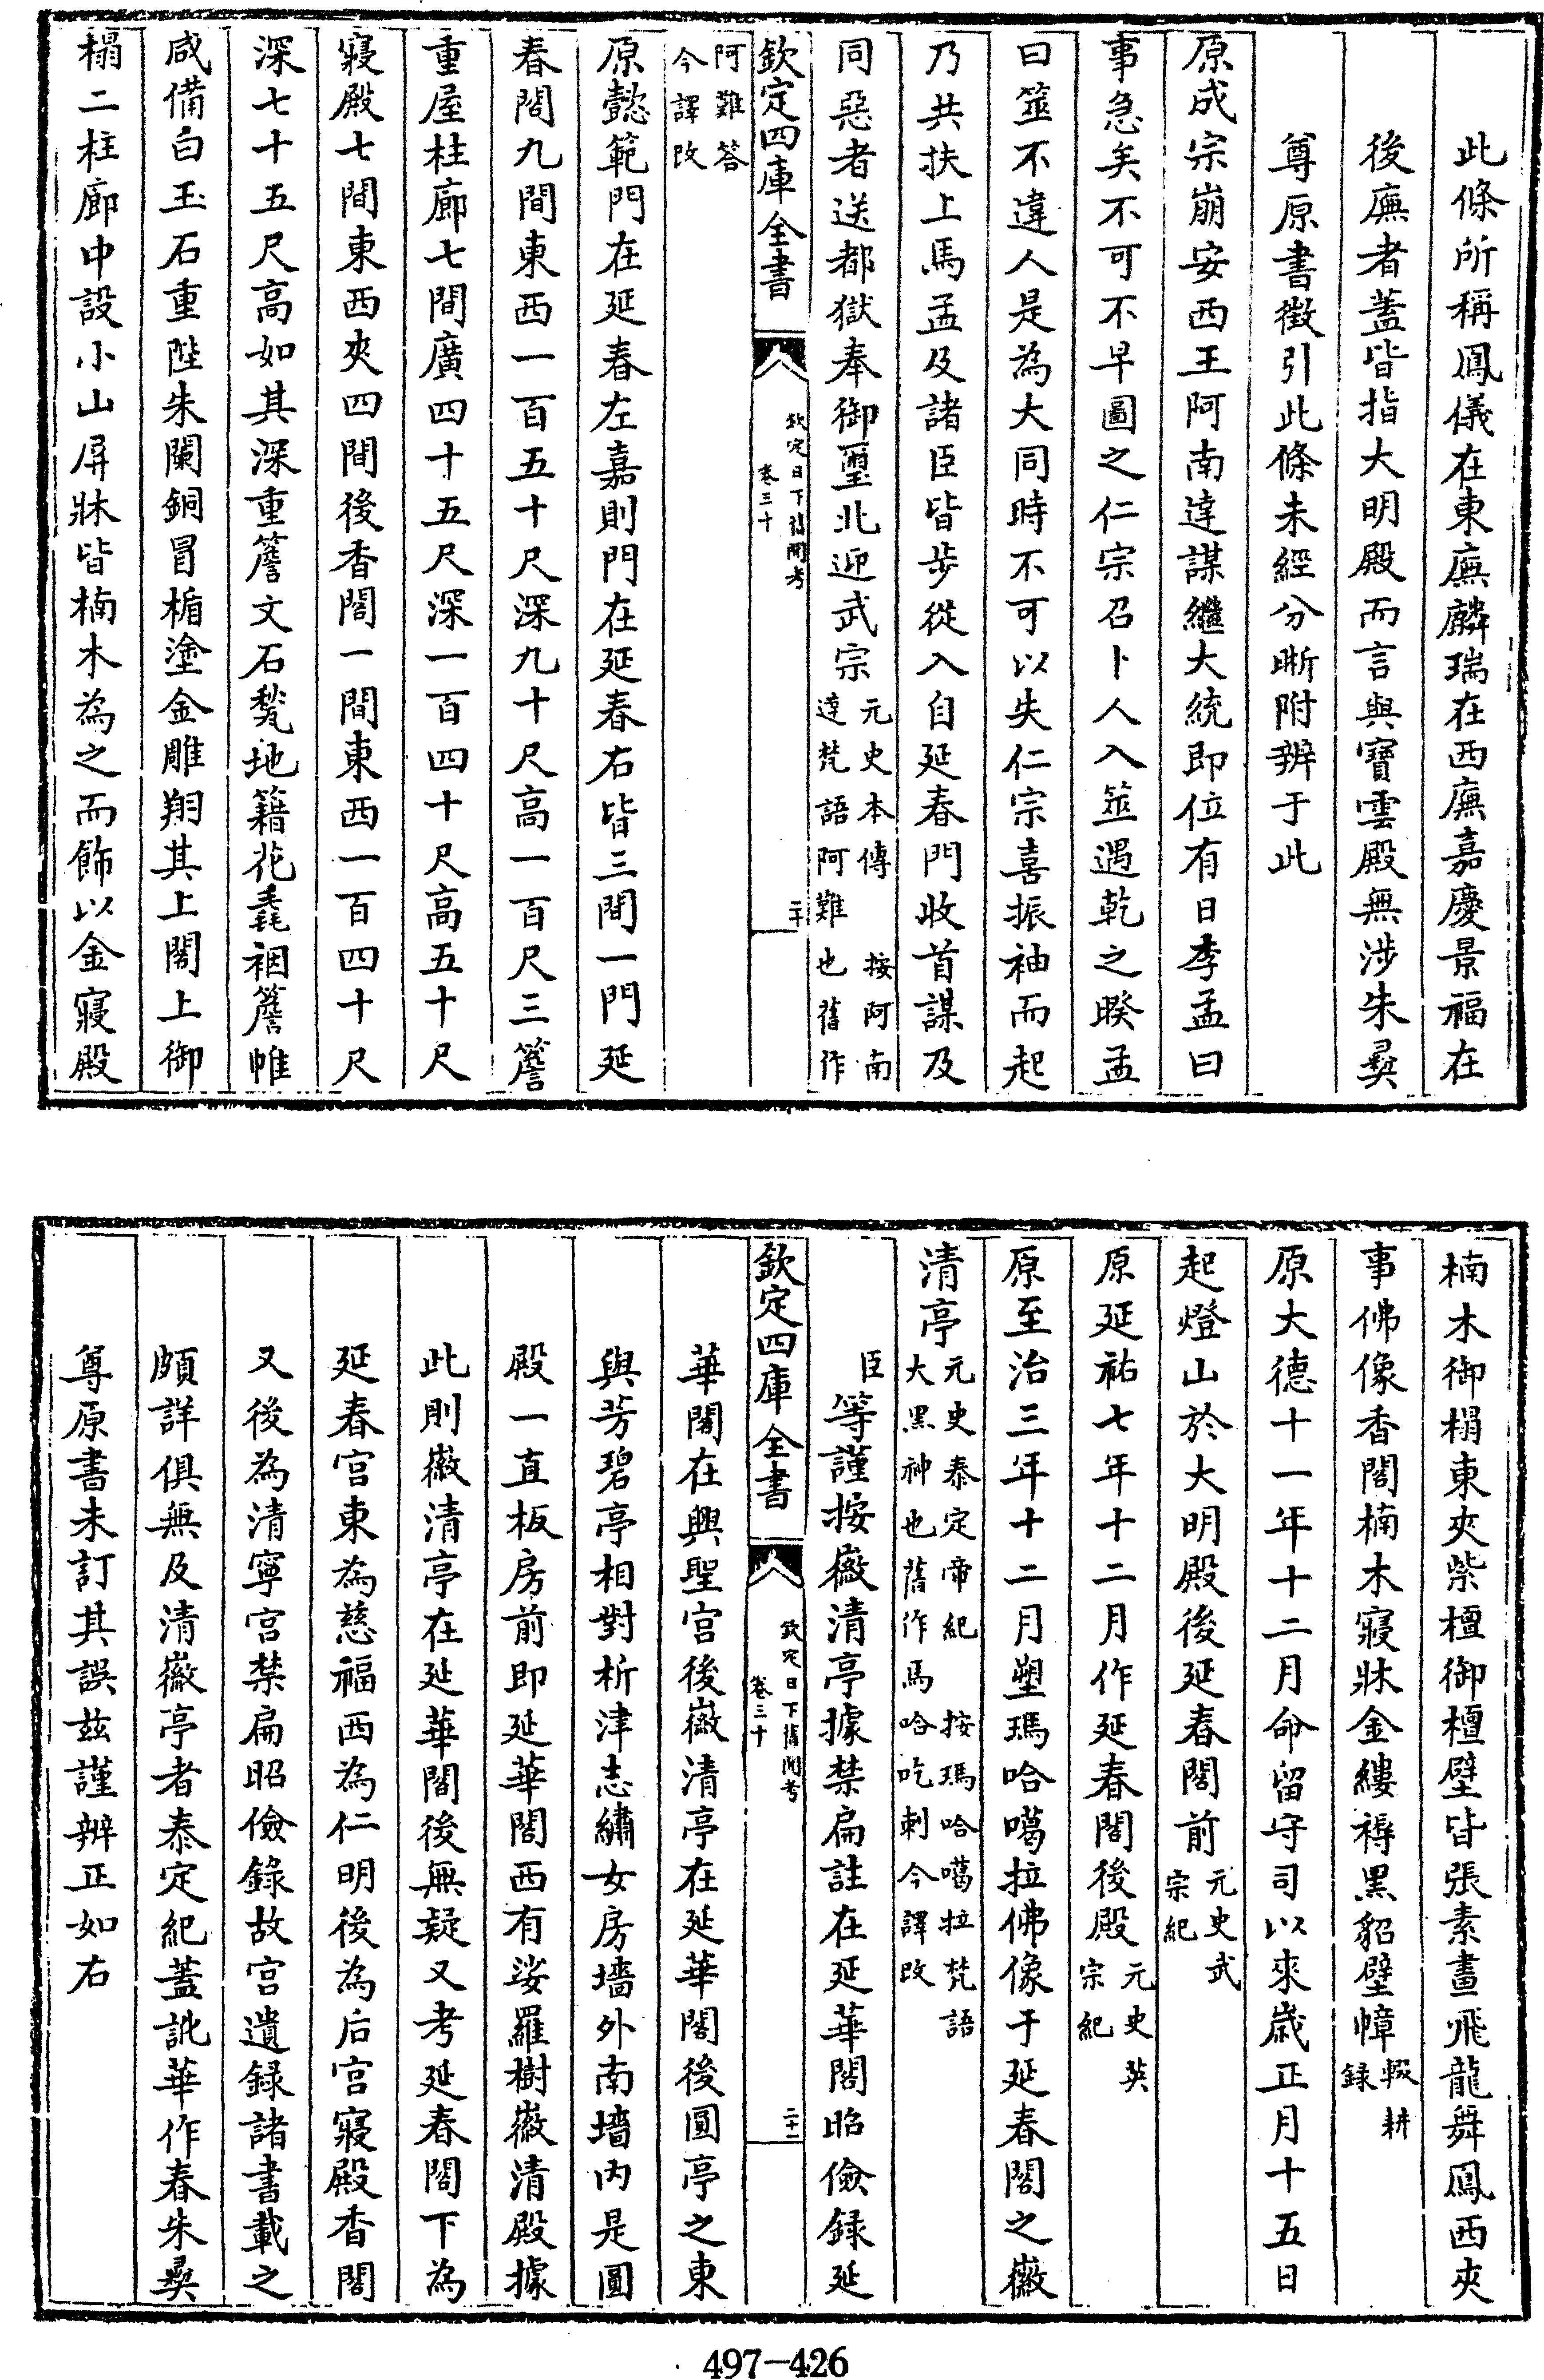 此條所稱鳳儀在東廡麟瑞在西廡嘉慶景福在
後廡者蓋皆指大明殿而言與寶雲殿無涉朱彛
尊原書徴引此條未經分晰附辨于此
原成宗崩安西王阿南達謀繼大統即位有日李孟曰
事急矣不可不早圖之仁宗召卜人入筮遇乾之睽孟
曰筮不違人是為大同時不可以失仁宗喜振袖而起
乃共扶上馬孟及諸臣皆步從入自延春門收首謀及
同惡者送都獄奉御璽北迎武宗元史本傳 按阿南
達梵語阿難也舊作
欽定四庫全書
欽定日下舊聞考
卷三十
二十
阿難答
今譯改
原懿範門在延春左嘉則門在延春右皆三間一門延
春閣九間東西一百五十尺深九十尺高一百尺三簷
重屋柱廊七間廣四十五尺深一百四十尺高五十尺
寢殿七間東西夾四間後香閣一間東西一百四十尺
深七十五尺高如其深重簷文石甃地籍花毳裀簷帷
咸備白玉石重陛朱闌銅冒楯塗金雕翔其上閣上御
榻二柱廊中設小山屏牀皆楠木為之而飾以金寢殿
楠木御榻東夾紫檀御檀壁皆張素畫飛龍舞鳳西夾
事佛像香閣楠木寢牀金縷褥黑貂壁幛輟耕
録
原大德十一年十二月命留守司以來歳正月十五日
起燈山於大明殿後延春閣前元史武
宗紀
原延祐七年十二月作延春閣後殿元史英
宗紀
原至治三年十二月塑瑪哈噶拉佛像于延春閣之徽
清亭元史泰定帝紀 按瑪哈噶拉梵語
大黑神也舊作馬哈吃剌今譯改
臣等謹按徽清亭據禁扁註在延華閣昭儉録延
欽定四庫全書
欽定日下舊聞考
卷三十
二十一
華閣在興聖宫後徽清亭在延華閣後圓亭之東
與芳碧亭相對析津志繡女房墻外南墻内是圓
殿一直板房前即延華閣西有娑羅樹徽清殿據
此則徽清亭在延華閣後無疑又考延春閣下為
延春宫東為慈福西為仁明後為后宫寢殿香閣
又後為清寧宫禁扁昭儉錄故宫遺録諸書載之
頗詳俱無及清徽亭者泰定紀蓋訛華作春朱彛
尊原書未訂其誤兹謹辨正如右
497-426